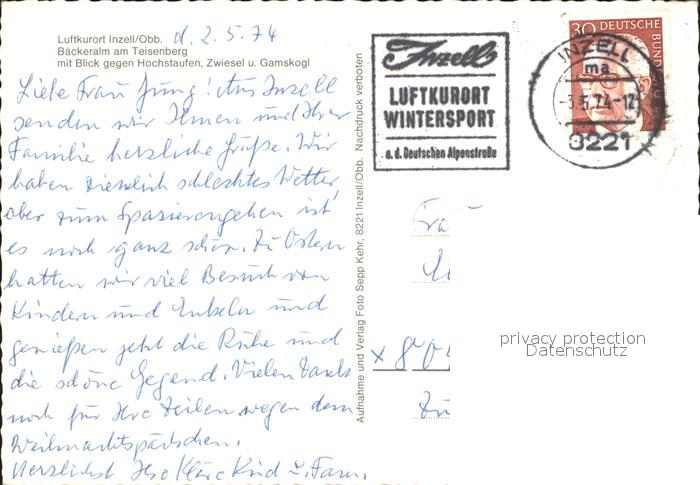 Luftkurort Inzell/Obb.
Bäckeralm am Teisenberg
mit Blick gegen Hochstaufen, Zwiesel u. Gamskogl
d. 2.5.74
Liebe Frau Jung! Aus Inzell
senden wir Ihnen und Ihrer
Familie herzliche Grüße. Wir
haben ziemlich schlechtes Wetter,
aber zum Spazierengehen ist
es noch ganz schön. Zu Ostern
hatten wir viel Besuch von
Kindern und Enkeln und
genießen jetzt die Ruhe und
die schöne Gegend. Vielen Dank
noch für Ihre Zeilen wegen dem
Weihnachtspäckchen.
Herzlichst Ihre Kläre Kind u. Fam.
Aufnahme und Verlag Foto Sepp Kehr, 8221 Inzell/Obb. Nachdruck verboten
Inzell
LUFTKURORT
WINTERSPORT
a.d. Deutschen Alpenstraße
30 DEUTSCHE BUND
INZELL
ma
-3.5.74-12
8221
Frau
x 80
privacy protection
Datenschutz